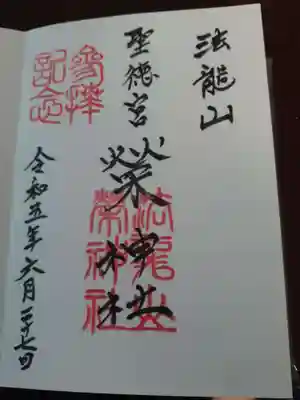 法龍山
聖徳宮
榮神社
法龍山
榮神社
参拝
記念
令和五年六月二十七日